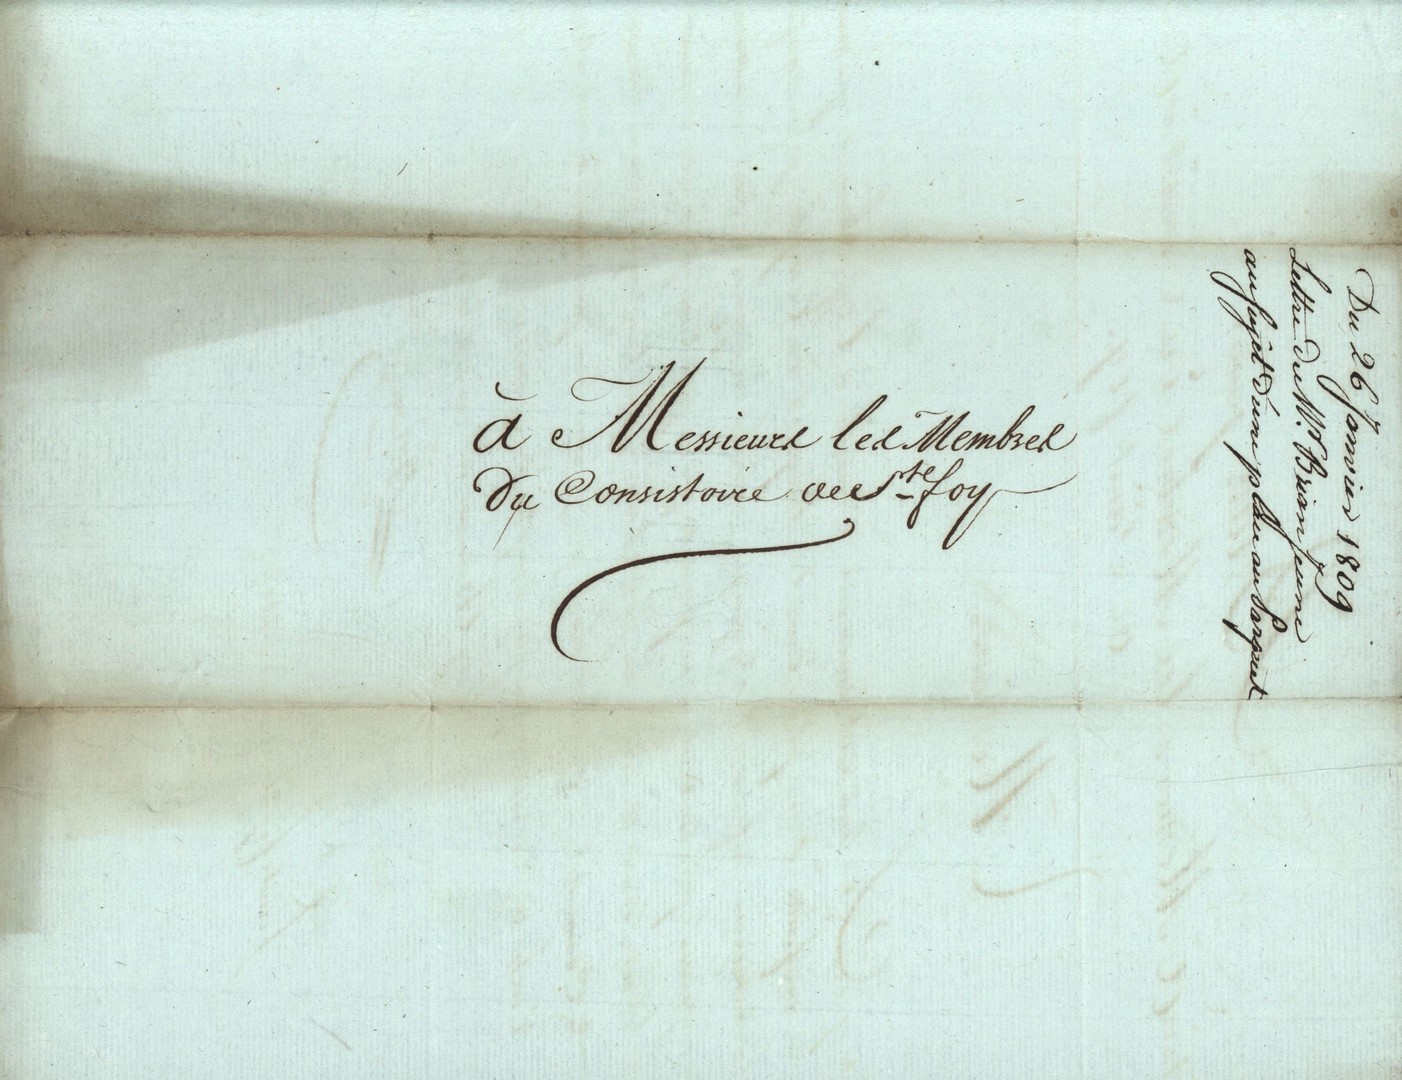 à Messieurs les Membres
Du Consistoire de S.te foy
Du 26 Janvier 1809
Lettre de Mr. Brian jeune
au sujet d'une place au Parquet